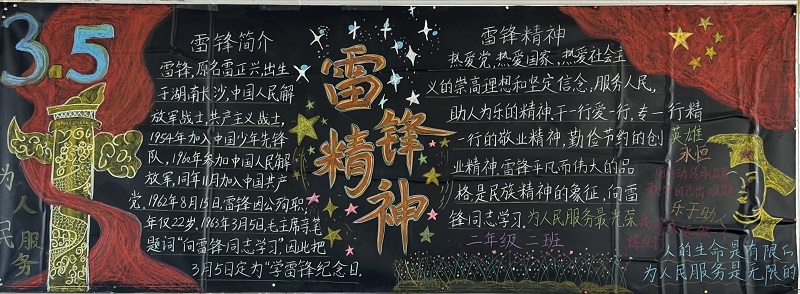 3.5
为人民服务
雷锋简介
雷锋,原名雷正兴,出生
于湖南长沙,中国人民解
放军战士,共产主义战士,
1954年加入中国少年先锋
队,1960年参加中国人民解
放军,同年11月加入中国共产
党,1962年8月15日,雷锋因公殉职,
年仅22岁,1963年3月5日,毛主席亲笔
题词"向雷锋同志学习"因此把
3月5日定为"学雷锋纪念日
雷锋精神
雷锋精神
热爱党,热爱国家,热爱社会主
义的崇高理想和坚定信念,服务人民,
助人为乐的精神,干一行爱一行,专一行精
一行的敬业精神,勤俭节约的创
业精神雷锋平凡而伟大的品
格是民族精神的象征,向雷
锋同志学习,为人民服务最光荣
二年级二班
英雄
永恒
乐于助人
人的生命是有限的
为人民服务是无限的